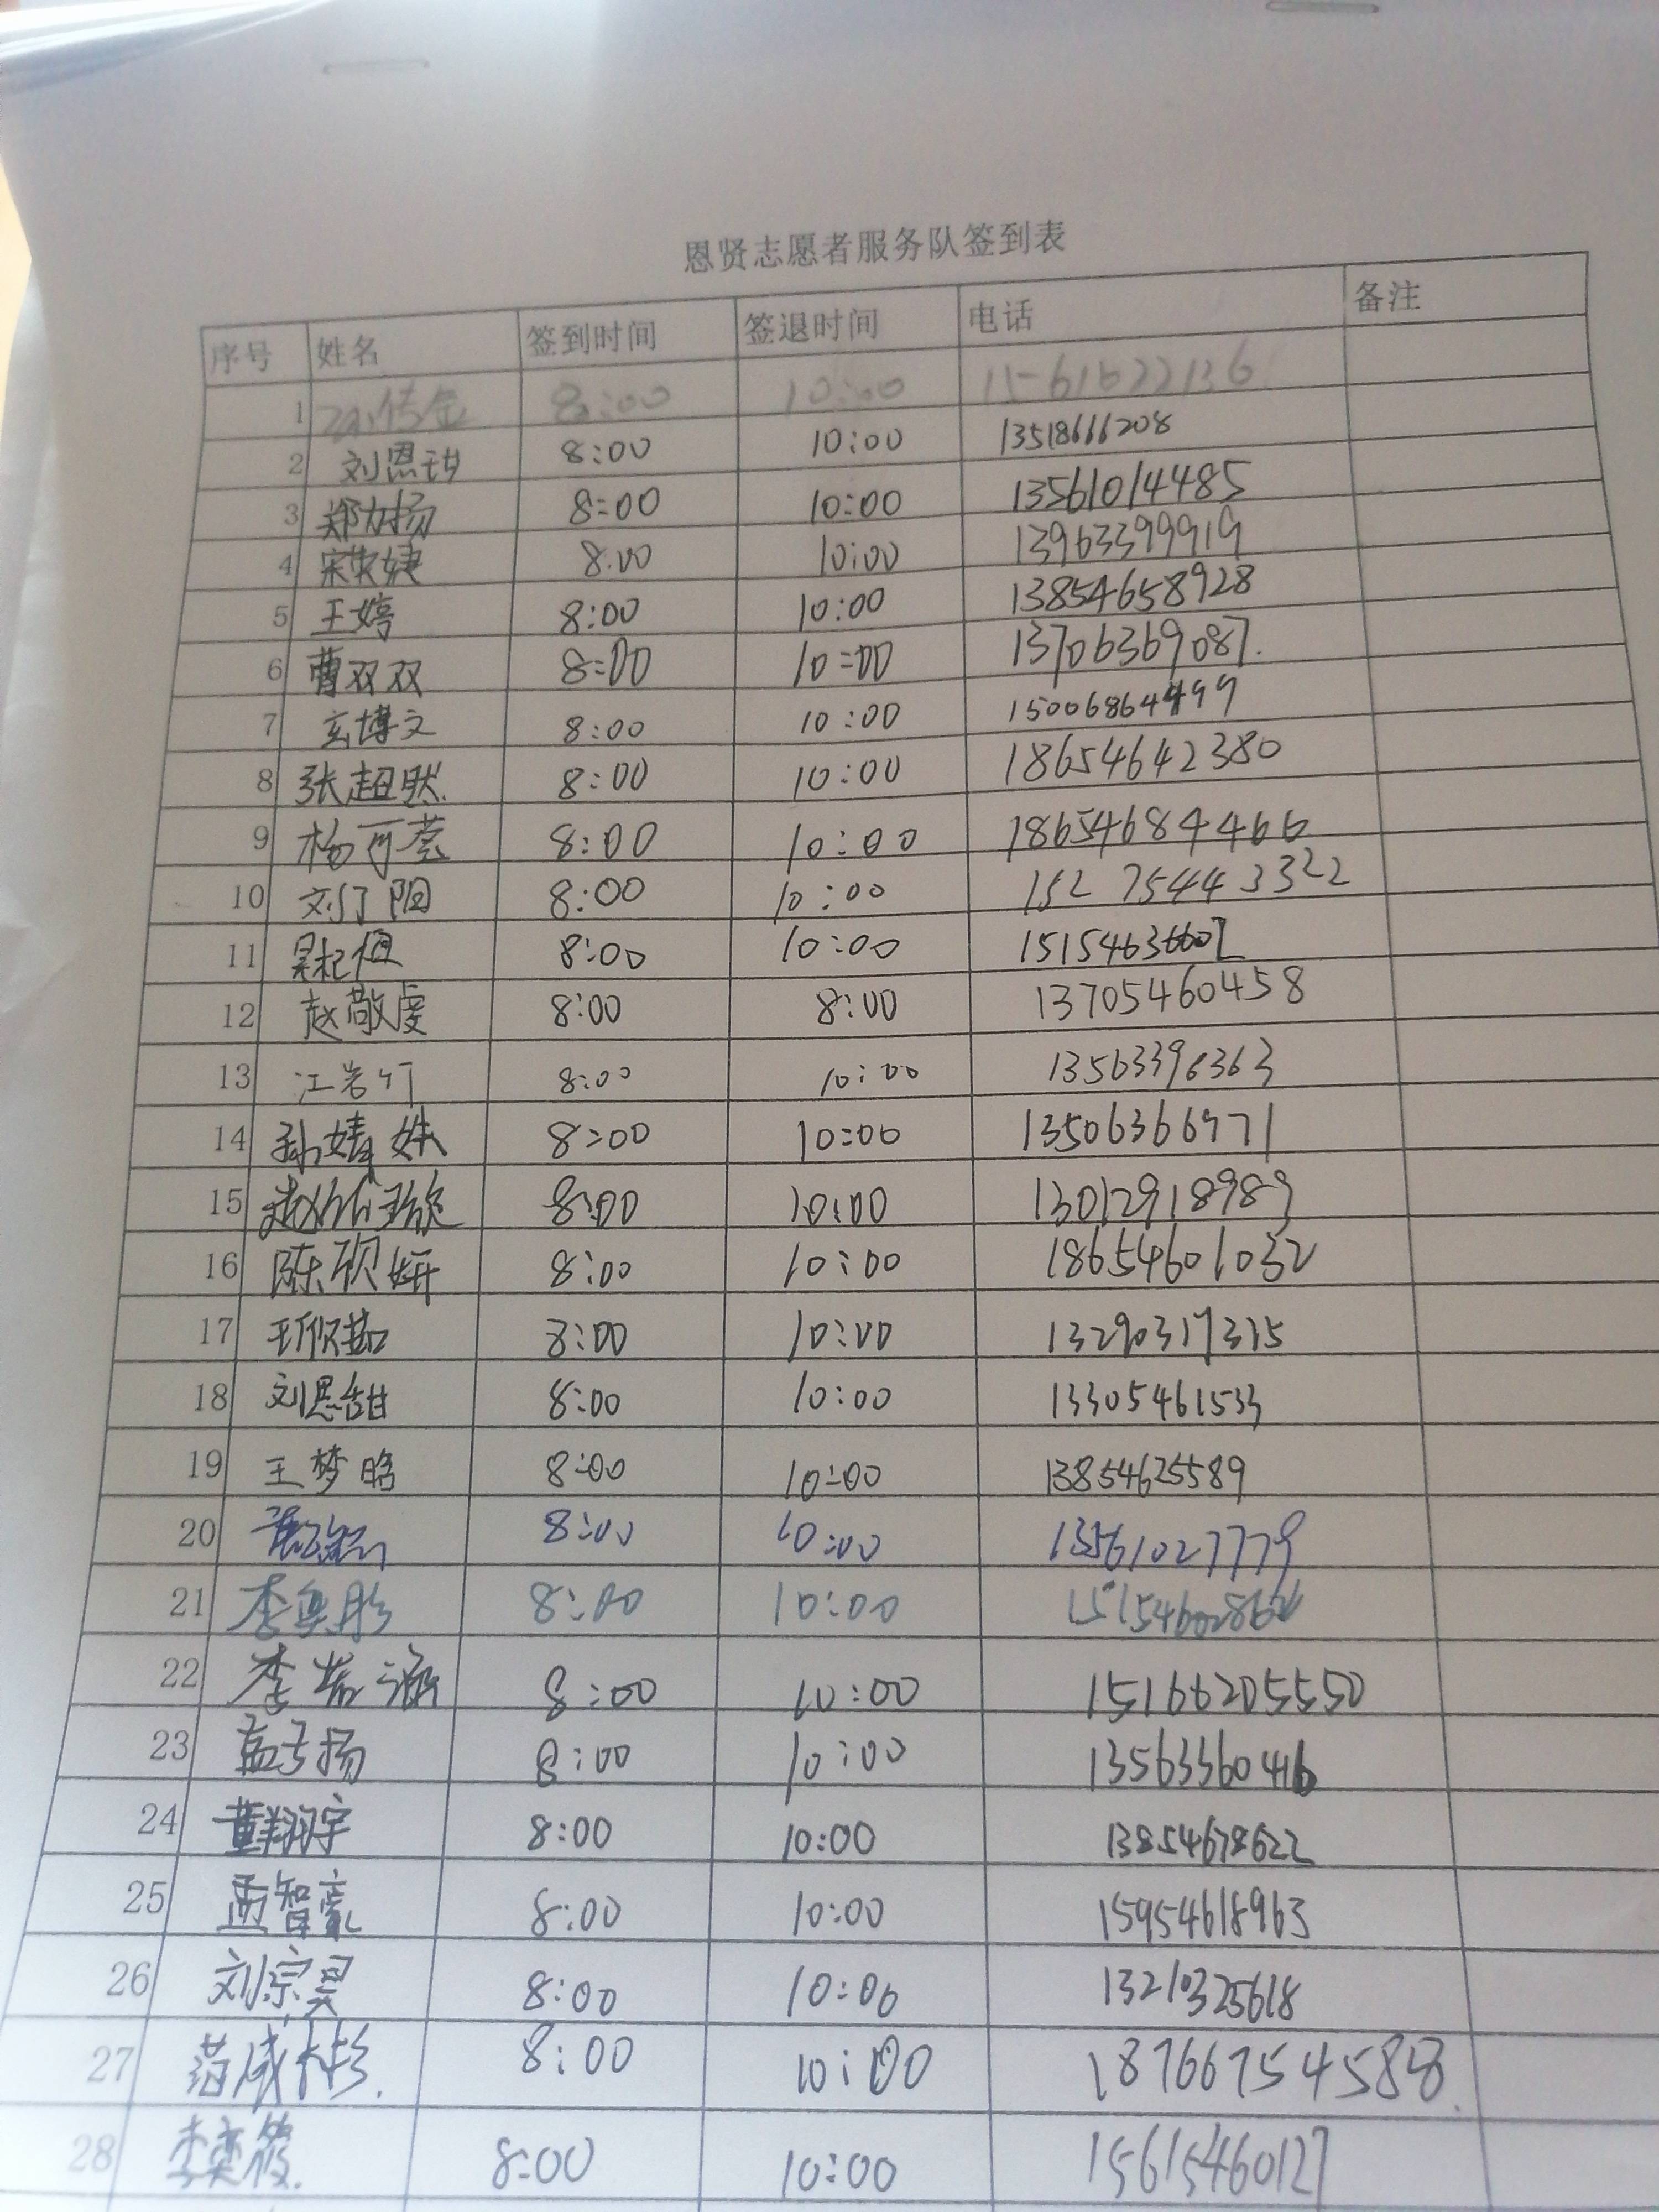 恩贤志愿者服务队签到表
序号 姓名 签到时间 签退时间 电话 备注
1 8:00 10:00
2 刘恩甜 8:00 10:00 13518666208
3 郑力扬 8:00 10:00 13561014485
4 8:00 10:00 13963399919
5 王婷 8:00 10:00 13854658928
6 曹双双 8:00 10:00 13706369087
7 玄博文 8:00 10:00
8 张超然 8:00 10:00 18654642380
9 杨可莹 8:00 10:00 18654684466
10 8:00 10:00 15275443322
11 8:00 10:00
12 赵敬虔 8:00 8:00 13705460458
13 江岩竹 8:00 10:00 13563396363
14 孙婧姝 8:00 10:00 13506366971
15 8:00 10:00 13012918989
16 陈砚妍 8:00 10:00 18654601032
17 8:00 10:00 13290317315
18 刘恩甜 8:00 10:00 13305461533
19 王梦晗 8:00 10:00 13854625589
20 8:00 10:00 13561027779
21 李奥彤 8:00 10:00
22 李岩涵 8:00 10:00 15166205550
23 孟于扬 8:00 10:00 13563360416
24 董翔宇 8:00 10:00 13854678622
25 孟智豪 8:00 10:00 15954618963
26 刘宗昊 8:00 10:00 13210325618
27 范成彬 8:00 10:00 18766754588
28 李奕筱 8:00 10:00 15615460127